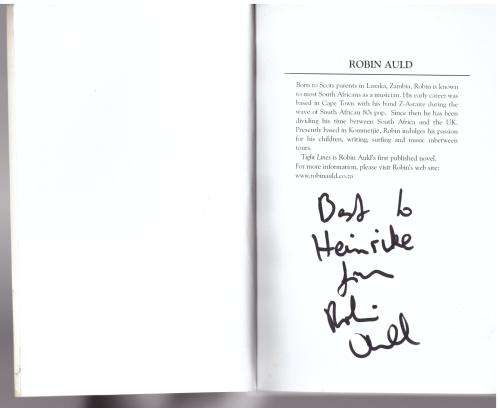 ROBIN AULD
Born to Scots parents in Lusaka, Zambia, Robin is known
to most South Africans as a musician. His early career was
based in Cape Town with his band Z-Astaire during the
wave of South African 80's pop. Since then he has been
dividing his time between South Africa and the UK.
Presently based in Kommetjie, Robin indulges his passion
for his children, writing, surfing and music inbetween
tours.
Tight Lines is Robin Auld's first published novel.
For more information, please visit Robin's web site:
www.robinauld.co.za
Best to
Heinricke
from
Robin
Auld